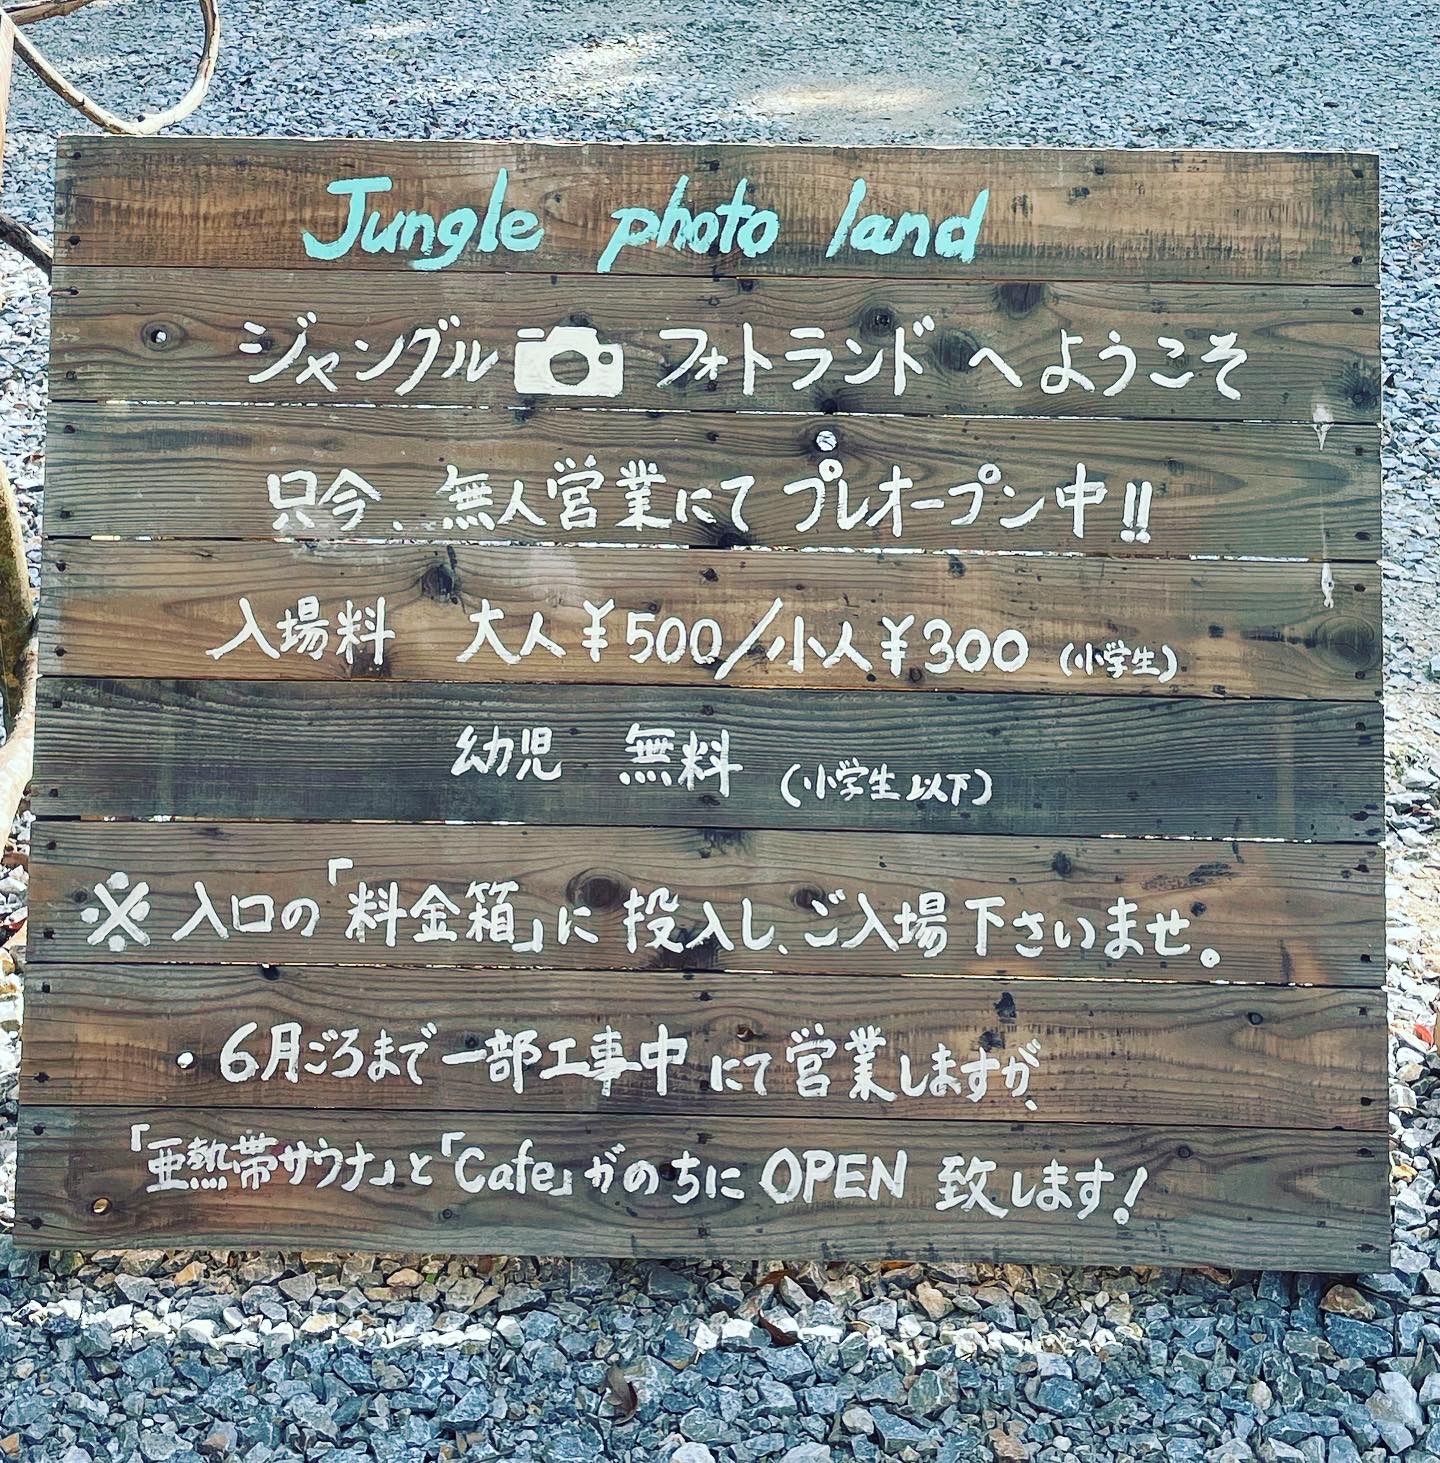 Jungle photo land
ジャングル フォトランドへようこそ
只今、無人営業にてプレオープン中!!
入場料 大人¥500/小人¥300 (小学生)
幼児 無料 (小学生以下)
※入口の「料金箱」に投入し、ご入場下さいませ。
・6月ごろまで一部工事中にて営業しますが、
「亜熱帯サウナ」と「Cafe」がのちにOPEN致します!